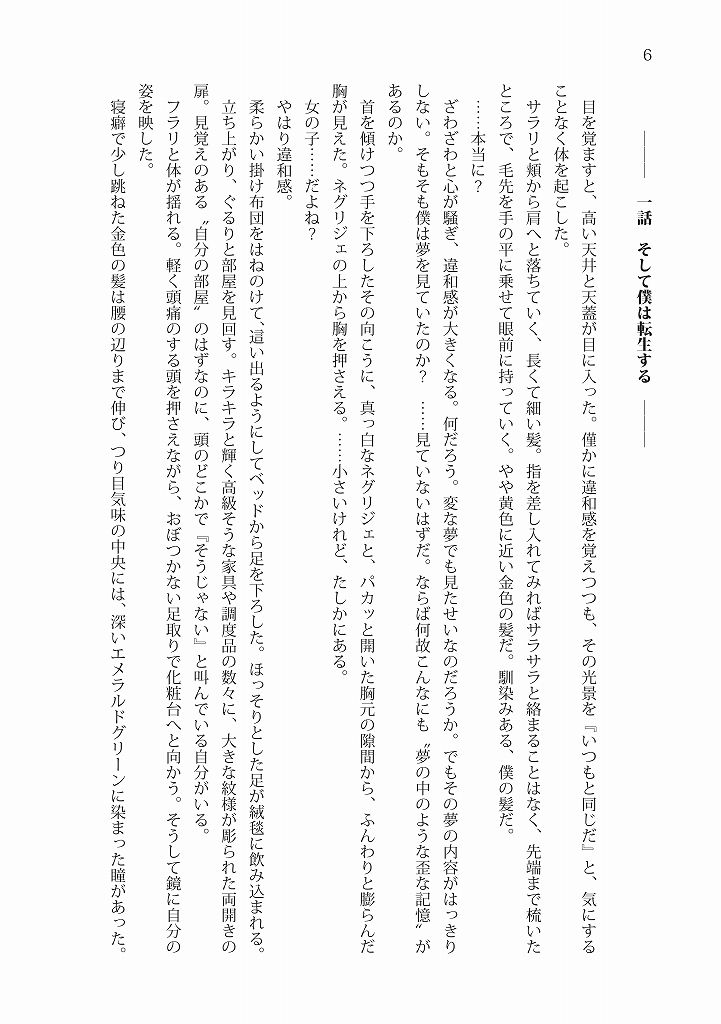 6
一話　そして僕は転生する
　目を覚ますと、高い天井と天蓋が目に入った。僅かに違和感を覚えつつも、その光景を『いつもと同じだ』と、気にする
ことなく体を起こした。
　サラリと頬から肩へと落ちていく、長くて細い髪。指を差し入れてみればサラサラと絡まることはなく、先端まで梳いた
ところで、毛先を手の平に乗せて眼前に持っていく。やや黄色に近い金色の髪だ。馴染みある、僕の髪だ。
　……本当に？
　ざわざわと心が騒ぎ、違和感が大きくなる。何だろう。変な夢でも見たせいなのだろうか。でもその夢の内容がはっきり
しない。そもそも僕は夢を見ていたのか？　……見ていないはずだ。ならば何故こんなにも〝夢の中のような歪な記憶〟が
あるのか。
　首を傾けつつ手を下ろしたその向こうに、真っ白なネグリジェと、パカッと開いた胸元の隙間から、ふんわりと膨らんだ
胸が見えた。ネグリジェの上から胸を押さえる。……小さいけれど、たしかにある。
　女の子……だよね？
　やはり違和感。
　柔らかい掛け布団をはねのけて、這い出るようにしてベッドから足を下ろした。ほっそりとした足が絨毯に飲み込まれる。
　立ち上がり、ぐるりと部屋を見回す。キラキラと輝く高級そうな家具や調度品の数々に、大きな紋様が彫られた両開きの
扉。見覚えのある〝自分の部屋〟のはずなのに、頭のどこかで『そうじゃない』と叫んでいる自分がいる。
　フラリと体が揺れる。軽く頭痛のする頭を押さえながら、おぼつかない足取りで化粧台へと向かう。そうして鏡に自分の
姿を映した。
　寝癖で少し跳ねた金色の髪は腰の辺りまで伸び、つり目気味の中央には、深いエメラルドグリーンに染まった瞳があった。